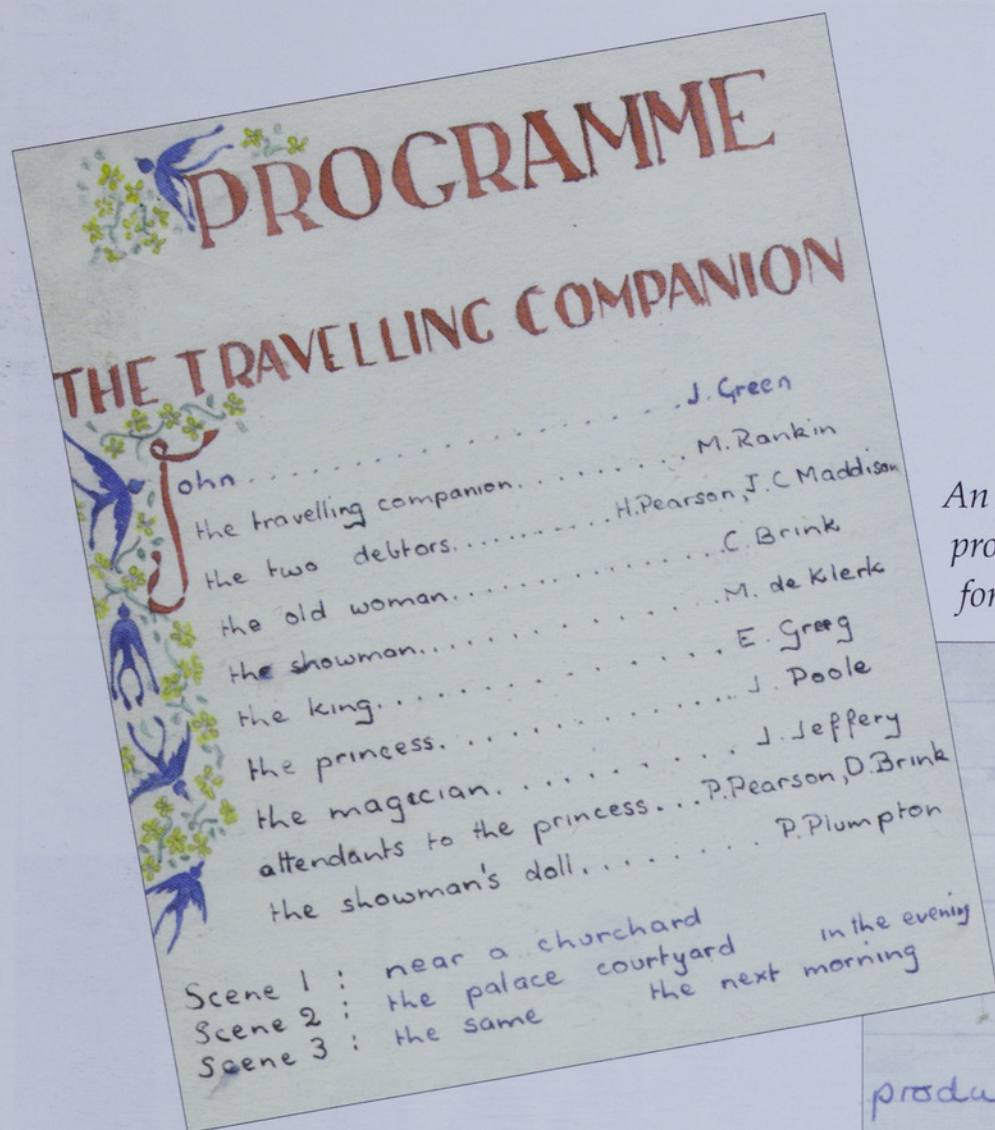 PROGRAMME
THE TRAVELLING COMPANION
John . . . . . . . . . . . . . . . . . . . J. Green
the travelling companion. . . . . . . M. Rankin
the two debtors. . . . . . . . . H. Pearson, J. C Maddison
the old woman. . . . . . . . . . . . . . C. Brink
the showman. . . . . . . . . . . . . . M. de Klerk
the king. . . . . . . . . . . . . . . . . E. Greeg
the princess. . . . . . . . . . . . . . . J. Poole
the magician. . . . . . . . . . . . J. Jeffery
attendants to the princess . . . P. Pearson, D. Brink
the showman's doll. . . . . . . . P. Plumpton
Scene 1 : near a churchard
Scene 2 : the palace courtyard in the evening
Scene 3 : the same the next morning
An
pro
for
produ